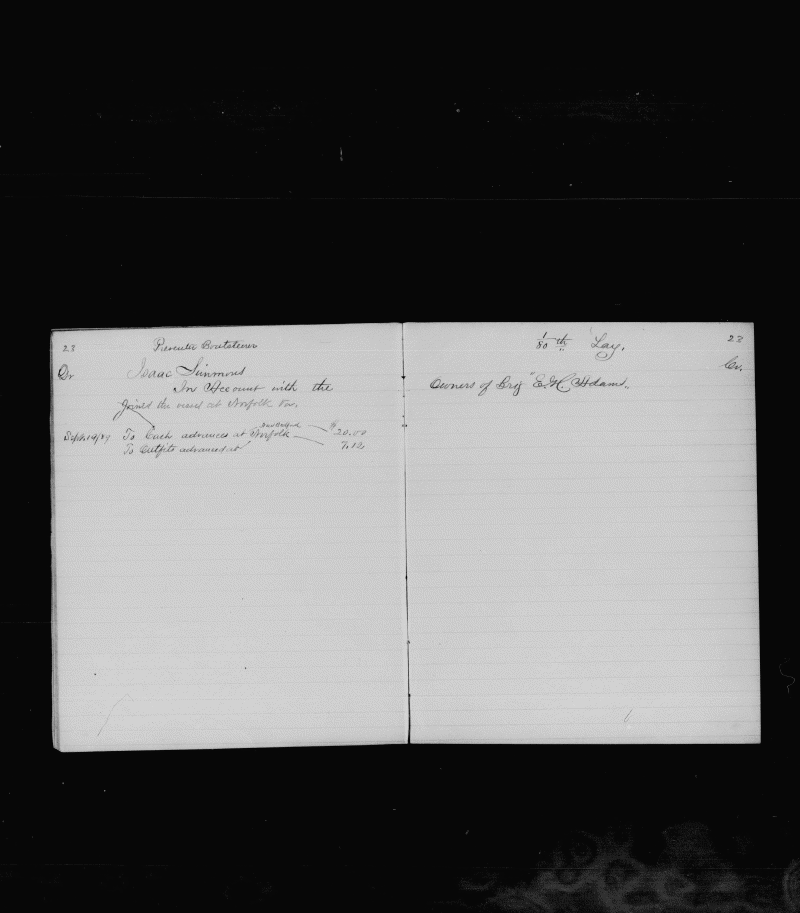 23
Preventer Boatsteerer
Dr Isaac Simmons
In Account with the
Joined the vessel at Norfolk Va.
Sept. 19/89 To Cash advances at Norfolk $20.00
To Outfits advanced at 7.12
1/80 th Lay. 23
Cr.
Owners of Brig "E. H. Adams"